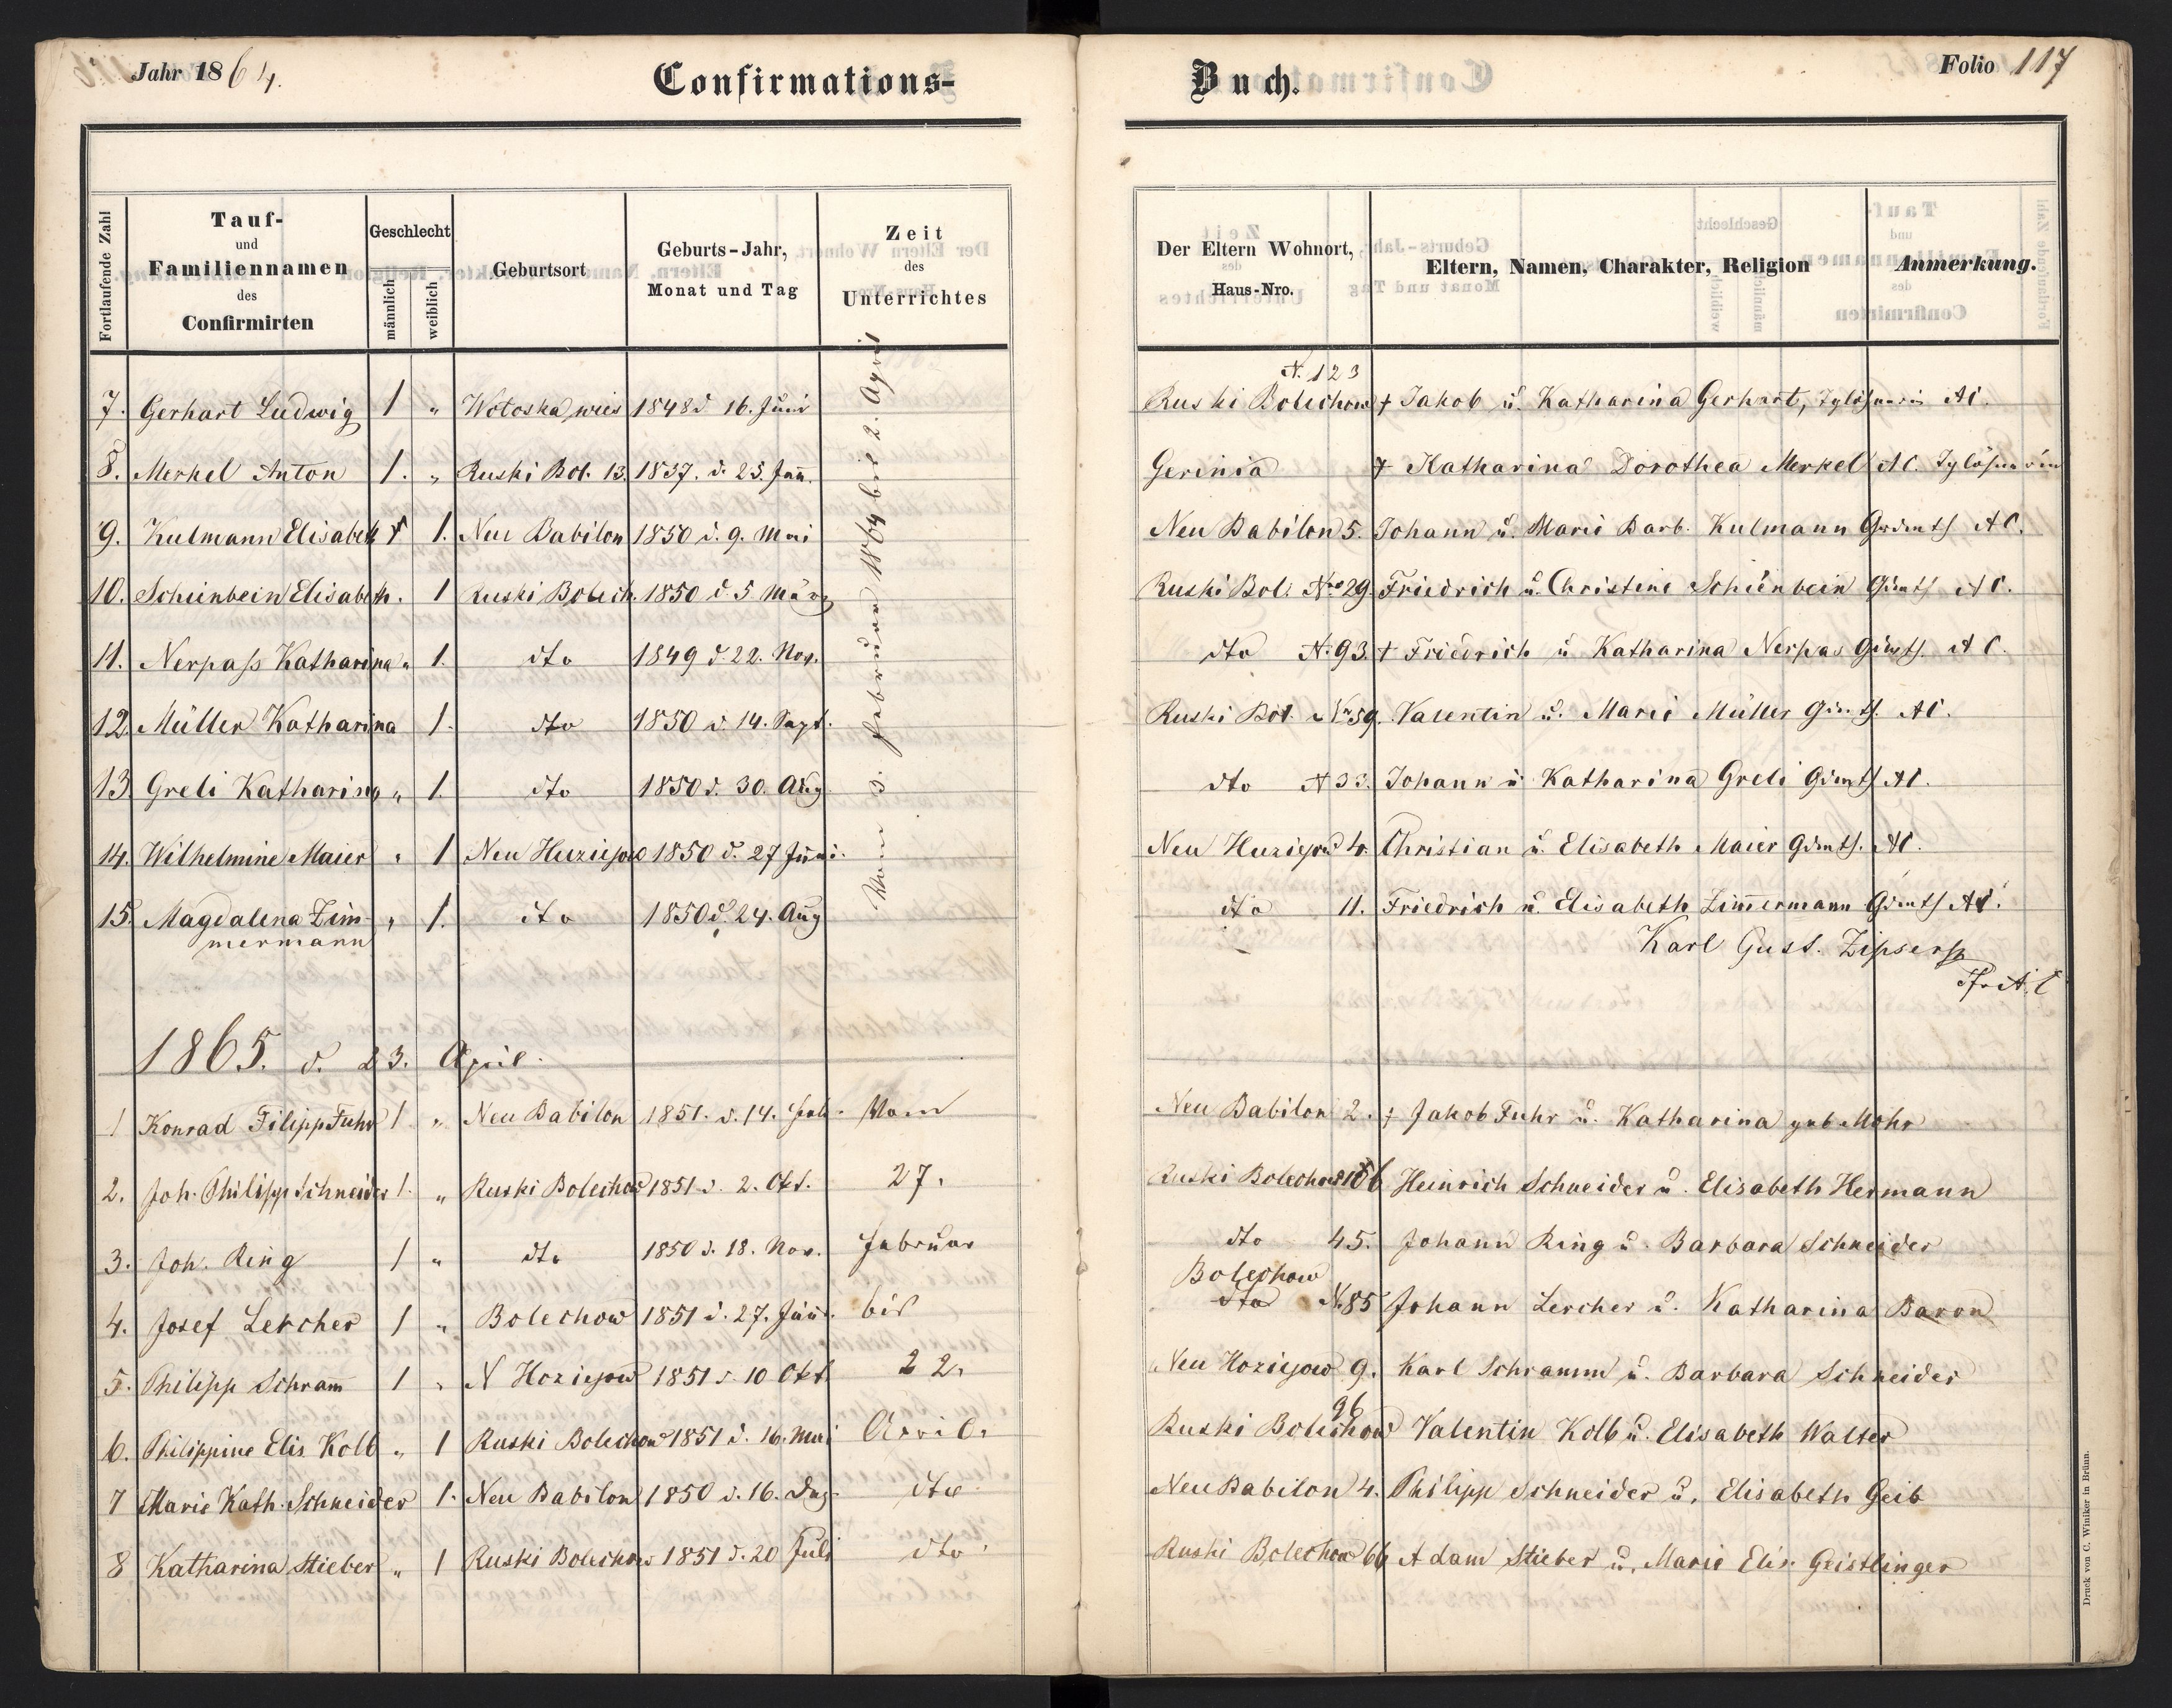 Jahr 1864.
Confirmations-
Buch.
Folio 117
Fortlaufende Zahl
Tauf-
und
Familiennamen
des
Confirmirten
Geschlecht
männlich
weiblich
Geburtsort
Geburts-Jahr,
Monat und Tag
Zeit
des
Unterrichtes
Der Eltern Wohnort,
Haus-Nro.
Eltern, Namen, Charakter, Religion
Anmerkung.
7. Gerhart Ludwig 1 " Wotoska wies 1848 d 16. Juni
N. 123
Ruski Bolechow † Jakob u. Katharina Gerhart, AC.
8. Merkel Anton 1. " Ruski Bol. 13. 1837. d. 25. Jan.
Gerinia † Katharina Dorothea Merkel AC.
9. Kulmann Elisabeth 1. Neu Babilon 1850 d. 9. Mai
Neu Babilon 5. Johann u. Marie Barb. Kulmann Grdwts AC.
10. Scheinbein Elisabeth. 1 Ruski Bolech. 1850 d. 5 März
Ruski Bol. Nro 29. Friedrich u. Christine Scheinbein AC.
11. Nerpass Katharina " 1. dto 1849 d. 22. Nov.
dto N. 93. † Friedrich u Katharina Nerpas AC.
12. Müller Katharina 1. dto 1850 d. 14. Sept.
Ruski Bol. No 59. Valentin u. Marie Müller AC.
13 Greli Katharina " 1. dto 1850 d. 30. Aug
dto N 33. Johann u Katharina Greli AC.
14. Wilhelmine Maier " 1 Neu Huziejow 1850 d. 27 Juni.
Neu Huziejow 4. Christian u. Elisabeth Maier AC.
15. Magdalena Zim- " 1. dto 1850 d. 24. Aug
mermann
dto 11. Friedrich u. Elisabeth Zimmermann AC.
Vom 3. Februar 1864 bis 2. April
Karl Gust. Zipser
1865. d. 23. April.
1 Konrad Filipp Fuhr 1 " Neu Babilon 1851. d. 14. Vom
Neu Babilon 2. † Jakob Fuhr u. Katharina geb Mohr
2. Joh. Philipp Schneider 1. " Ruski Bolechow 1851 d. 2. Okt. 27.
Ruski Bolechow Heinrich Schneider u. Elisabeth Hermann
3. Joh. Ring 1 " dto 1850 d. 18. Nov. Februar
dto 45. Johann Ring u. Barbara Schneider
4. Josef Lercher 1 " Bolechow 1851 d. 27. bis
Bolechow
dto N. 85 Johann Lercher u. Katharina Baron
5. Philipp Schram 1 " N Hoziejow 1851 d. 10 Okt. 22.
Neu Hoziejow 9. Karl Schramm u. Barbara Schneider
6. Philippine Elis Kolb " 1 Ruski Bolechow 1851 d. 16. Mai April.
96
Ruski Bolechow Valentin Kolb u. Elisabeth Walter
7 Marie Kath. Schneider 1. Neu Babilon 1850 d. 16. Aug. dto
Neu Babilon 4. Philipp Schneider u. Elisabeth Geib
8 Katharina Stieber " 1 Ruski Bolechow 1851 d. 20 Juli dto
Ruski Bolechow 66 Adam Stieber u. Marie Elis. Geistlinger
Druck von C. Winiker in Brünn.